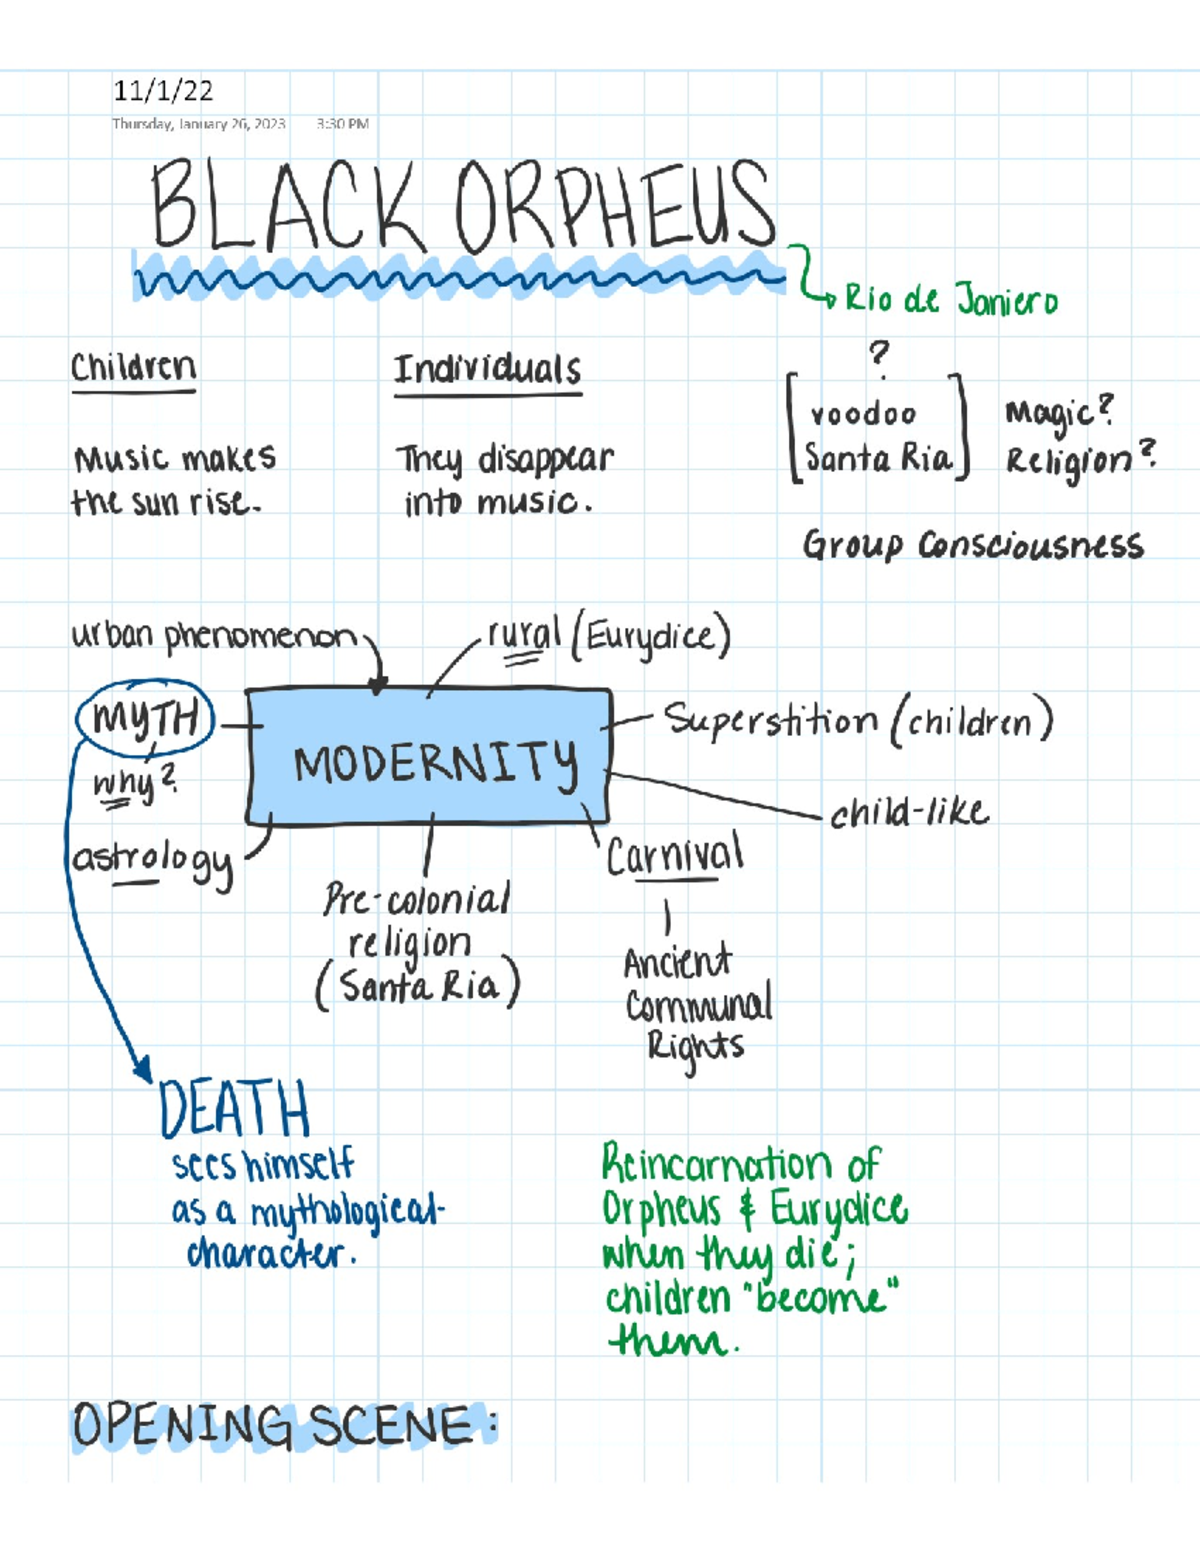 11/1/22
Thursday, January 26, 2023 3:30 PM
BLACK ORPHEUS
Rio de Janiero
Children
Individuals
?
voodoo
Santa Ria
Magic?
Religion?
Music makes
the sun rise.
They disappear
into music.
Group Consciousness
urban phenomenon
rural (Eurydice)
MYTH
why?
MODERNITY
Superstition (children)
child-like
astrology
Carnival
Pre-colonial
religion
(Santa Ria)
Ancient
Communal
Rights
DEATH
sees himself
as a mythological
character.
Reincarnation of
Orpheus & Eurydice
when they die;
children "become"
them.
OPENING SCENE: